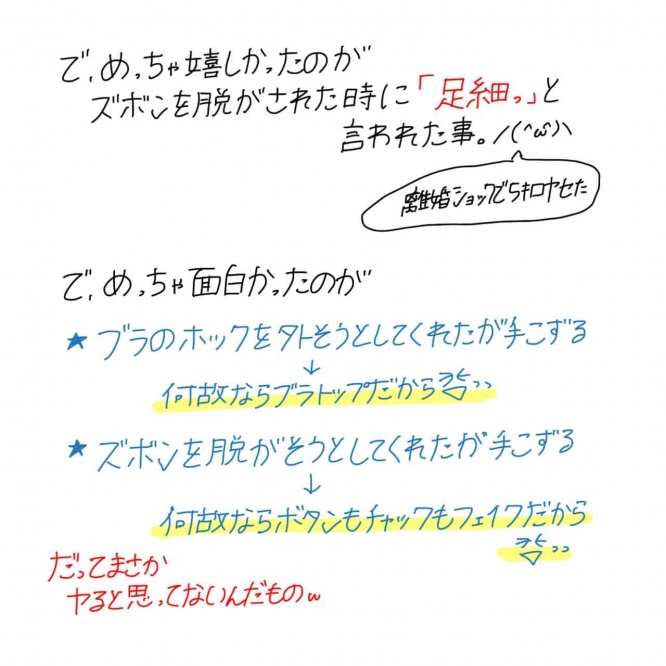 で、めっちゃ嬉しかったのが
ズボンを脱がされた時に「足細っ」と
言われた事。ノ(^ω^)\
離婚ショックで5キロヤセた
で、めっちゃ面白かったのが
★ ブラのホックを外そうとしてくれたが手こずる
↓
何故ならブラトップだから
★ ズボンを脱がそうとしてくれたが手こずる
↓
何故ならボタンもチャックもフェイクだから
だってまさか
ヤると思ってないんだものw